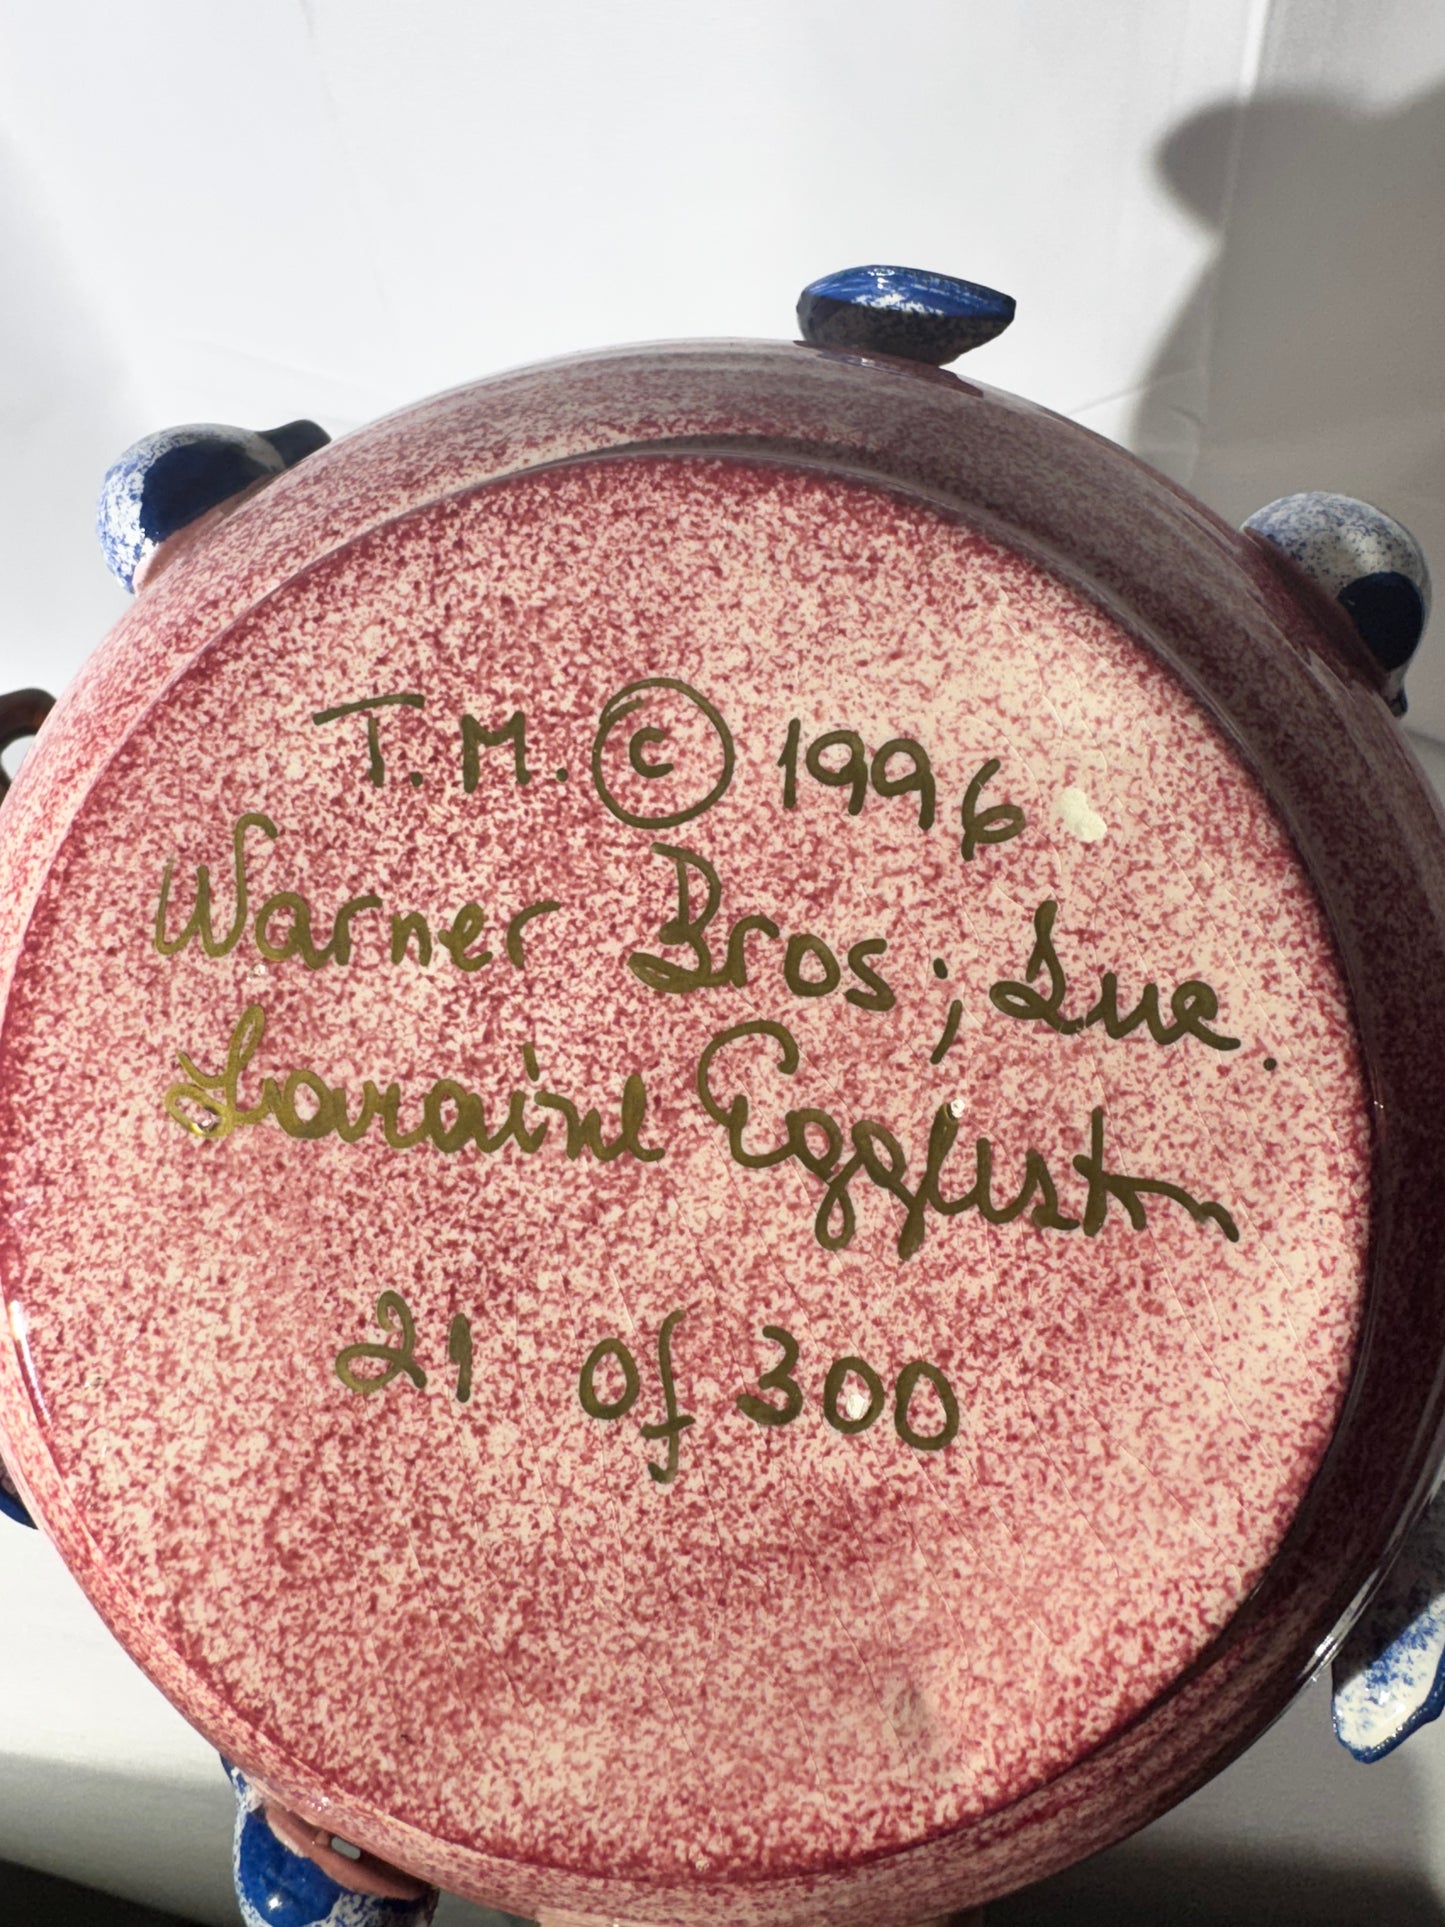 T.M. © 1996
Warner Bros; Inc.
Lorraine Eggleston
21 of 300